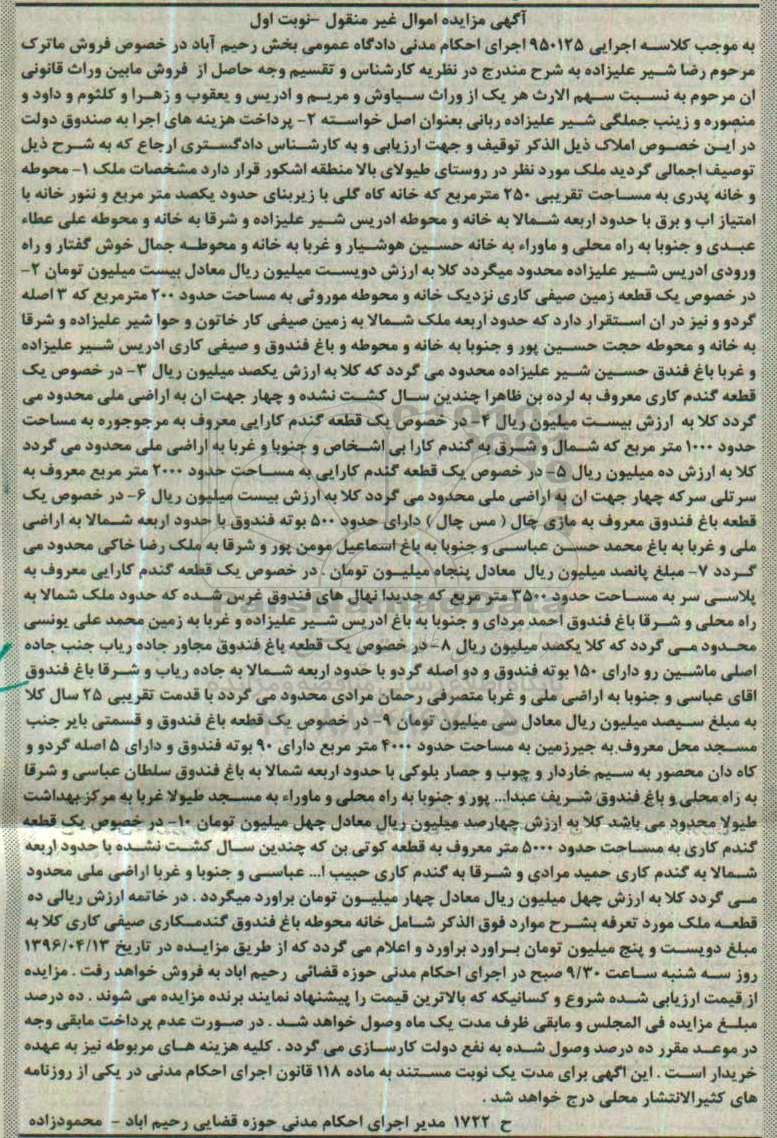 آگهی مزایده اموال غیر منقول -نوبت اول
به موجب کلاسه اجرایی ۹۵۰۱۲۵ اجرای احکام مدنی دادگاه عمومی بخش رحیم آباد در خصوص فروش ماترک
مرحوم رضا شیر علیزاده به شرح مندرج در نظریه کارشناس و تقسیم وجه حاصل از فروش مابین وراث قانونی
ان مرحوم به نسبت سهم الارث هر یک از وراث سیاوش و مریم و ادریس و یعقوب و زهرا و کلثوم و داود و
منصوره و زینب جملگی شیر علیزاده ربانی بعنوان اصل خواسته ۲- پرداخت هزینه های اجرا به صندوق دولت
در این خصوص املاک ذیل الذکر توقیف و جهت ارزیابی و به کارشناس دادگستری ارجاع که به شرح ذیل
توصیف اجمالی گردید ملک مورد نظر در روستای طیولای بالا منطقه اشکور قرار دارد مشخصات ملک ۱- محوطه
و خانه پدری به مساحت تقریبی ۲۵۰ مترمربع که خانه کاه گلی با زیربنای حدود یکصد متر مربع و تنور خانه با
امتیاز اب و برق با حدود اربعه شمالا به خانه و محوطه ادریس شیر علیزاده و شرقا به خانه و محوطه علی عطاء
عبدی و جنوبا به راه محلی و ماوراء به خانه حسین هوشیار و غربا به خانه و محوطه جمال خوش گفتار و راه
ورودی ادریس شیر علیزاده محدود میگردد کلا به ارزش دویست میلیون ریال معادل بیست میلیون تومان ۲-
در خصوص یک قطعه زمین صیفی کاری نزدیک خانه و محوطه موروثی به مساحت حدود ۲۰۰ مترمربع که ۳ اصله
گردو و نیز در ان استقرار دارد که حدود اربعه ملک شمالا به زمین صیفی کار خاتون و حوا شیر علیزاده و شرقا
به خانه و محوطه حجت حسین پور و جنوبا به خانه و محوطه و باغ فندوق و صیفی کاری ادریس شیر علیزاده
و غربا باغ فندق حسین شیر علیزاده محدود می گردد که کلا به ارزش یکصد میلیون ریال ۳- در خصوص یک
قطعه گندم کاری معروف به لرده بن ظاهرا چندین سال کشت نشده و چهار جهت ان به اراضی ملی محدود می
گردد کلا به ارزش بیست میلیون ریال ۴- در خصوص یک قطعه گندم کارایی معروف به مرجوجوره به مساحت
حدود ۱۰۰۰ متر مربع که شمال و شرق به گندم کارا بی اشخاص و جنوبا و غربا به اراضی ملی محدود می گردد
کلا به ارزش ده میلیون ریال ۵- در خصوص یک قطعه گندم کارایی به مساحت حدود ۲۰۰۰ متر مربع معروف به
سرتلی سرکه چهار جهت ان به اراضی ملی محدود می گردد کلا به ارزش بیست میلیون ریال ۶- در خصوص یک
قطعه باغ فندوق معروف به مازی چال ( مس چال ) دارای حدود ۵۰۰ بوته فندوق با حدود اربعه شمالا به اراضی
ملی و غربا به باغ محمد حسن عباسی و جنوبا به باغ اسماعیل مومن پور و شرقا به ملک رضا خاکی محدود می
گردد ۷- مبلغ پانصد میلیون ریال معادل پنجاه میلیون تومان . در خصوص یک قطعه گندم کارایی معروف به
پلاسی سر به مساحت حدود ۳۵۰۰ متر مربع که جدیدا نهال های فندوق غرس شده که حدود ملک شمالا به
راه محلی و شرقا باغ فندوق احمد مردای و جنوبا به باغ ادریس شیر علیزاده و غربا به زمین محمد علی یونسی
محدود می گردد که کلا یکصد میلیون ریال ۸- در خصوص یک قطعه باغ فندوق مجاور جاده ریاب جنب جاده
اصلی ماشین رو دارای ۱۵۰ بوته فندوق و دو اصله گردو با حدود اربعه شمالا به جاده ریاب و شرقا باغ فندوق
اقای عباسی و جنوبا به اراضی ملی و غربا متصرفی رحمان مرادی محدود می گردد با قدمت تقریبی ۲۵ سال کلا
به مبلغ سیصد میلیون ریال معادل سی میلیون تومان ۹- در خصوص یک قطعه باغ فندوق و قسمتی بایر جنب
مسجد محل معروف به جیرزمین به مساحت حدود ۴۰۰۰ متر مربع دارای ۹۰ بوته فندوق و دارای ۵ اصله گردو و
کاه دان محصور به سیم خاردار و چوب و حصار بلوکی با حدود اربعه شمالا به باغ فندوق سلطان عباسی و شرقا
به راه محلی و باغ فندوق شریف عبدا... پور و جنوبا به راه محلی و ماوراء به مسجد طیولا غربا به مرکز بهداشت
طیولا محدود می باشد کلا به ارزش چهارصد میلیون ریال معادل چهل میلیون تومان ۱۰- در خصوص یک قطعه
گندم کاری به مساحت حدود ۵۰۰۰ متر معروف به قطعه کوتی بن که چندین سال کشت نشده با حدود اربعه
شمالا به گندم کاری حمید مرادی و شرقا به گندم کاری حبیب ا... عباسی و جنوبا و غربا اراضی ملی محدود
می گردد کلا به ارزش چهل میلیون ریال معادل چهار میلیون تومان براورد میگردد . در خاتمه ارزش ریالی ده
قطعه ملک مورد تعرفه بشرح موارد فوق الذکر شامل خانه محوطه باغ فندوق گندمکاری صیفی کاری کلا به
مبلغ دویست و پنج میلیون تومان براورد براورد و اعلام می گردد که از طریق مزایده در تاریخ ۱۳۹۶/۰۴/۱۳
روز سه شنبه ساعت ۹/۳۰ صبح در اجرای احکام مدنی حوزه قضائی رحیم اباد به فروش خواهد رفت . مزایده
از قیمت ارزیابی شده شروع و کسانیکه که بالاترین قیمت را پیشنهاد نمایند برنده مزایده می شوند . ده درصد
مبلغ مزایده فی المجلس و مابقی ظرف مدت یک ماه وصول خواهد شد . در صورت عدم پرداخت مابقی وجه
در موعد مقرر ده درصد وصول شده به نفع دولت کارسازی می گردد . کلیه هزینه های مربوطه نیز به عهده
خریدار است . این اگهی برای مدت یک نوبت مستند به ماده ۱۱۸ قانون اجرای احکام مدنی در یکی از روزنامه
های کثیرالانتشار محلی درج خواهد شد .
ح ۱۷۲۲ مدیر اجرای احکام مدنی حوزه قضایی رحیم اباد - محمودزاده